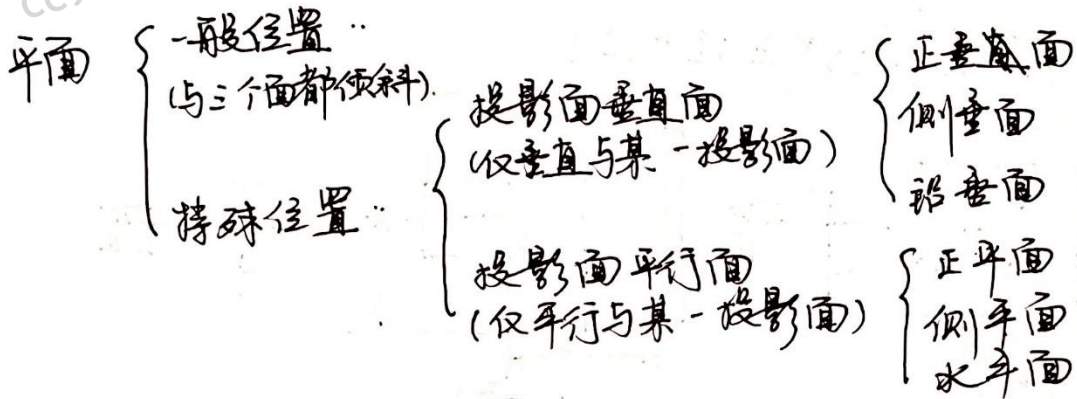 平面
一般位置
(与三个面都倾斜)
特殊位置
投影面垂直面
(仅垂直与某一投影面)
投影面平行面
(仅平行与某一投影面)
正垂面
侧垂面
铅垂面
正平面
侧平面
水平面